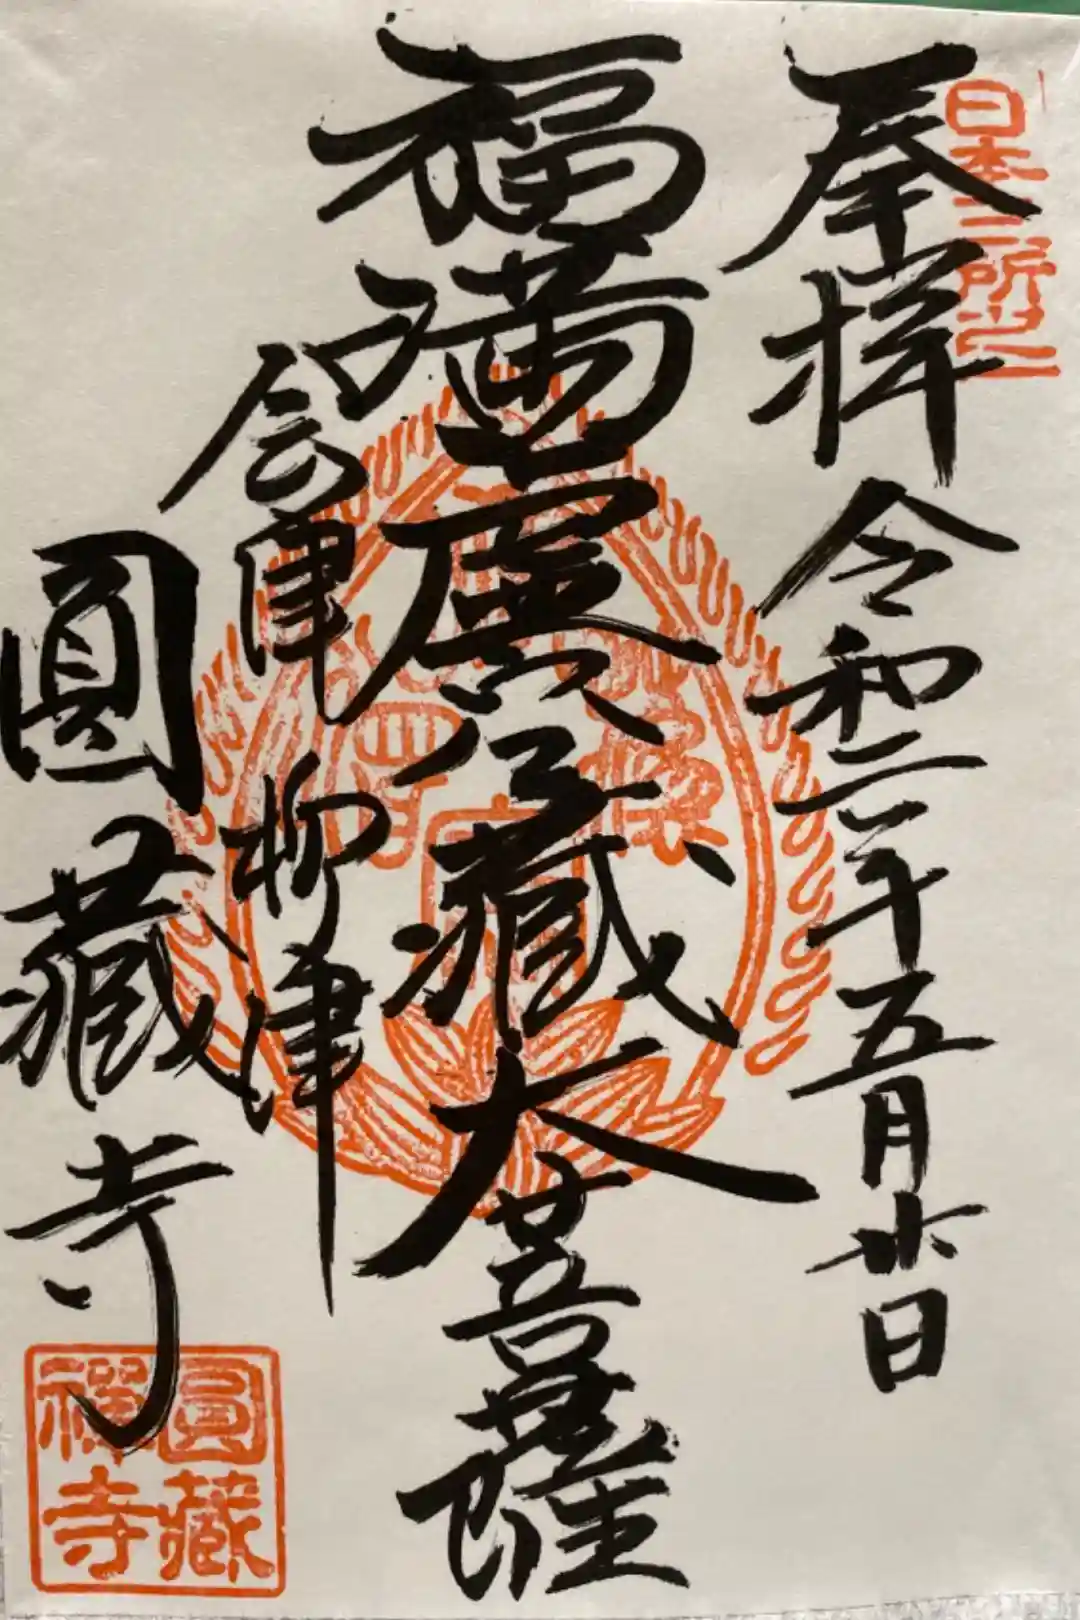 奉拝
令和二年五月廿日
日本三所之一
福満虚空藏大菩薩
会津
柳津
圓藏寺
圓藏
禅寺